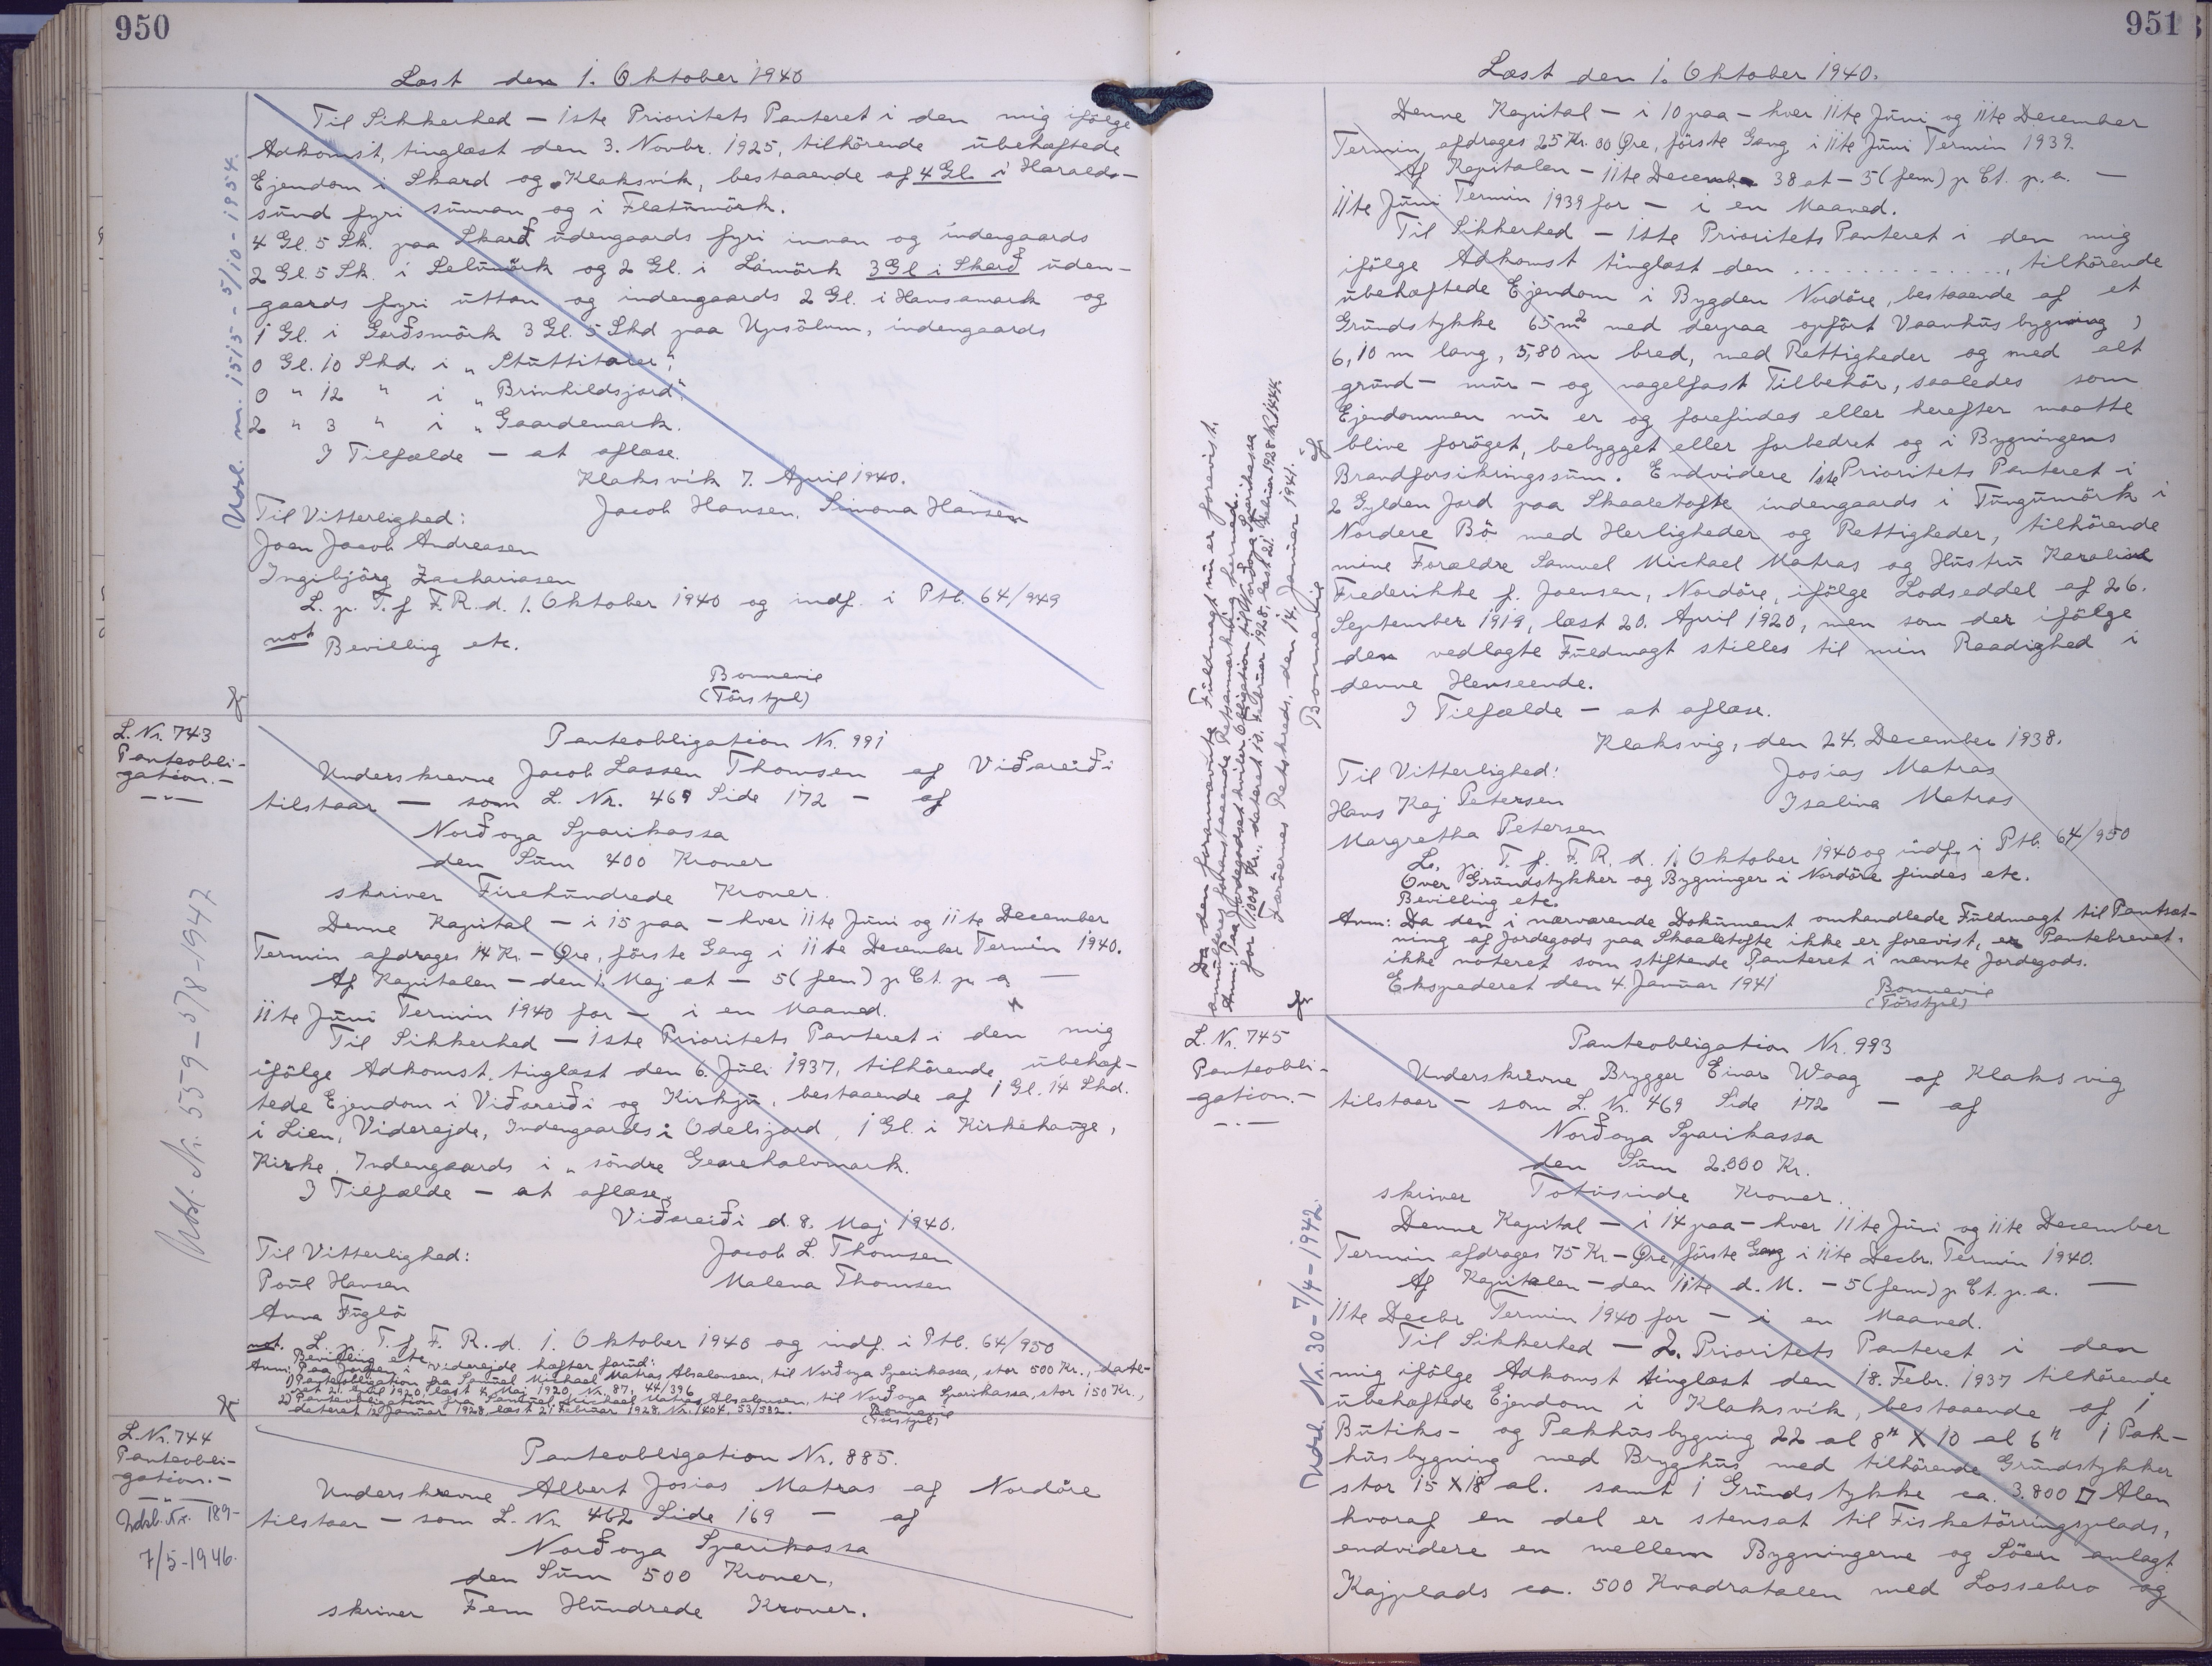 950
Læst den 1. Oktober 1940
Til Sikkerhed — 1ste Prioritets Panteret i den mig ifölge
Adkomst, tinglæst den 3. Novbr. 1925, tilhörende ubehæftede
Ejendom i Skard og Klaksvík, bestaaende af 4 Gl. i Haralds-
sund fyri sunnan og i Flatumörk.
4 Gl. 5 Sk. paa Skarð udengaards fyri innan og indengaards
2 Gl. 5 Sk. i Selumörk og 2 Gl. i Lámörk 3 Gl i Skarð uden-
gaards fyri uttan og indengaards 2 Gl. i Hansamark og
1 Gl. i Gerðsmörk 3 Gl. 5 Skd paa Upsölum, indengaards
0 Gl. 10 Skd. i „Stuttitaler",
0 " 12 " i „Brinhildsjord",
2 " 3 " i „Gaardemark.
I Tilfælde — at aflæse.
Klaksvík 7. April 1940.
Til Vitterlighed: Jacob Hansen. Simona Hansen
Joen Jacob Andreasen
Ingibjörg Zachariasen
L. p. T. f. F. R. d. 1. Oktober 1940 og indf. i Ptb. 64/949
not Bevilling etc.
Bonnevie
(Törstpl)
Udsl. nr. 1515 - 5/10 - 1954.
L. Nr. 743
Panteobli-
gation.-
Panteobligation Nr. 991
Underskrevne Jacob Lassen Thomsen af Viðareiði
tilstaar — som L. Nr. 469 Side 172 — af
Norðoya Sparikassa
den Sum 400 Kroner
skriver Firehundrede Kroner.
Denne Kapital — i 15 paa — hver 11te Juni og 11te December
Termin afdrages 14 Kr. - Øre, förste Gang i 11te December Termin 1940.
Af Kapitalen — den 1. Maj at — 5 (fem) p Ct. p. a. —
11te Juni Termin 1940 for — i en Maaned.
Til Sikkerhed — 1ste Prioritets Panteret i den mig
ifölge Adkomst, tinglæst den 6. Juli 1937, tilhörende ubehæf-
tede Ejendom i Viðareiði og Kirkju, bestaaende af 1 Gl. 14 Skd.
i Lien, Viderejde, Indengaards i Odelsjord, 1 Gl. i Kirkehauge,
Kirke, Indengaards i „söndre Gearehalvmark.
I Tilfælde — at aflæse.
Viðareiði d. 8. Maj 1940.
Til Vitterlighed: Jacob L. Thomsen
Poul Hansen Malena Thomsen
Anna Fuglö
not. L. p. T. f. F. R. d. 1. Oktober 1940 og indf. i Ptb. 64/950
Bevilling etc.
Anm: Paa Jorden i Viderejde hæfter forud:
1) Panteobligation fra Samuel Michael Matras Absalonsen, til Norðoya Sparikassa, stor 500 Kr., date-
ret 21. April 1920, læst 4. Maj 1920, Nr. 87, 44/396
2) Panteobligation fra Samuel Michael Matras Absalonsen, til Norðoya Sparikassa, stor 150 Kr.,
dateret 12. Januar 1928, læst 21. Februar 1928, Nr. 1404, 53/532. Bonnevie
(Törstpl)
Udsl. Nr. 559 - 5/8 - 1947
L. Nr. 744
Panteobli-
gation.-
Udsl. Nr. 189-
7/5-1946.
Panteobligation Nr. 885.
Underskrevne Albert Josias Matras af Nordöre
tilstaar — som L. Nr. 462 Side 169 — af
Norðoya Sparikassa
den Sum 500 Kroner,
skriver Fem Hundrede Kroner.
951
Læst den 1. Oktober 1940.
Denne Kapital — i 10 paa — hver 11te Juni og 11te December
Termin, afdrages 25 Kr. 00 Øre, förste Gang i 11te Juni Termin 1939.
Af Kapitalen — 11te December 38 at — 5 (fem) p Ct. p. a. —
11te Juni Termin 1939 for — i en Maaned.
Til Sikkerhed — 1ste Prioritets Panteret i den mig
ifölge Adkomst tinglæst den .............., tilhörende
ubehæftede Ejendom i Bygden Nordöre, bestaaende af et
Grundstykke 65 m² med derpaa opfört Vaanhusbygning,
6,10 m lang, 5,80 m bred, med Rettigheder og med alt
grund - mur - og nagelfast Tilbehör, saaledes som
Ejendommen nu er og forefindes eller herefter maatte
blive foröget, bebygget eller forbedret og i Bygningens
Brandforsikringssum. Endvidere 1ste Prioritets Panteret i
2 Gylden Jord paa Skaaletofte indengaards i Tungumörk i
Nordere Bö med Herligheder og Rettigheder, tilhörende
mine Forældre Samuel Michael Matras og Hustru Karoline
Frederikke f. Joensen, Nordöre, ifölge Lodseddel af 26.
September 1919, læst 20. April 1920, men som der ifölge
den vedlagte Fuldmagt stilles til min Raadighed i
denne Henseende.
I Tilfælde — at aflæse.
Klaksvig, den 24. December 1938.
Til Vitterlighed: Josias Matras
Hans Kaj Petersen Isalina Matras
Margretha Petersen
L. p. T. f. F. R. d. 1. Oktober 1940 og indf. i Ptb. 64/950
Over Grundstykker og Bygninger i Nordöre findes etc.
Bevilling etc.
Anm: Da den i nærværende Dokument omhandlede Fuldmagt til Pantsæt-
ning af Jordegods paa Skaaletofte ikke er forevist, er Pantebrevet
ikke noteret som stiftende Panteret i nævnte Jordegods.
Ekspederet den 4. Januar 1941 Bonnevie
(Törstpl)
Da den forannævnte Fuldmagt nu er forevist,
annulleres foranstaaende Retsanmærkning hermed.
Anm: Paa Jordegodset hviler Obligation til Norðoya Sparikassa
for 1.000 Kr., dateret 10. Februar 1928, læst 21. Februar 1928 Nr. 1444.
Færöernes Retskreds, den 14. Januar 1941.
Bonnevie
L. Nr. 745
Panteobli-
gation.-
Panteobligation Nr. 993
Underskrevne Brygger Einar Waag af Klaksvig
tilstaar — som L. Nr. 469 Side 172 — af
Norðoya Sparikassa
den Sum 2.000 Kr.
skriver Totusinde Kroner.
Denne Kapital — i 14 paa — hver 11te Juni og 11te December
Termin afdrages 75 Kr. - Øre, förste Gang i 11te Decbr. Termin 1940.
Af Kapitalen — den 11te d. M. — 5 (fem) p Ct. p. a. —
11te Decbr Termin 1940 for — i en Maaned.
Til Sikkerhed — 2. Prioritets Panteret i den
mig ifölge Adkomst tinglæst den 18. Febr. 1937 tilhörende
ubehæftede Ejendom i Klaksvík, bestaaende af 1
Butiks- og Pakhusbygning 22 al 8" X 10 al 6" 1 Pak-
husbygning med Bryghus med tilhörende Grundstykker
stor 15 X 18 al. samt 1 Grundstykke ca. 3.800 □ Alen
hvoraf en del er stensat til Fisketörringsplads,
endvidere en mellem Bygningerne og Söen anlagt
Kajplads ca. 500 Kvadratalen med Lossebro og
Udsl. Nr. 30 - 7/4 - 1942.